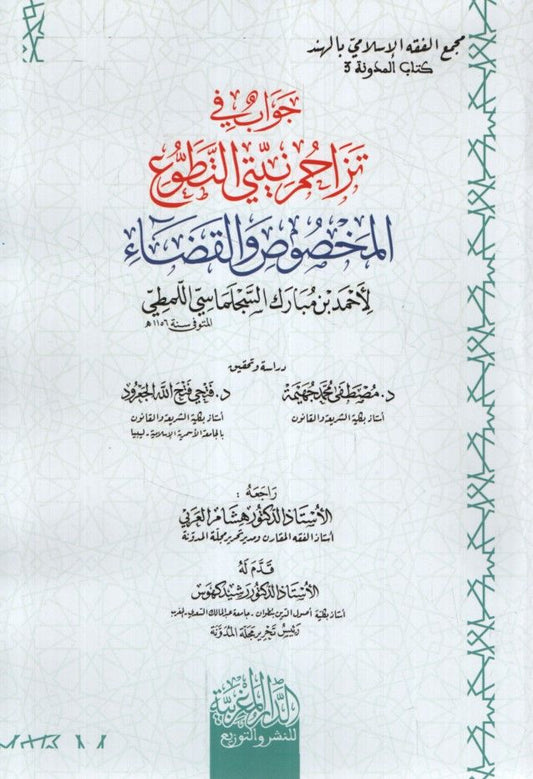 مجمع الفقه الإسلامي بالهند
كتاب المدونة 3
جَوَابٌ فِي
تَزَاحُمِ نِيَّتَيِ التَّطَوُّعِ
المَخْصُوصِ وَالقَضَاءِ
لِأَحْمَد بْن مُبَارَك السِّجِلْمَاسِيّ اللَّمَطِيِّ
المتوفى سنة ١١٥٦هـ
دراسة وتحقيق
د. مُصْطَفَى مُحَمَّد جُهَيْمَة
د. فَتْحِي فَتْحُ اللَّه الجَعْرُود
أستاذ بكلية الشريعة والقانون
أستاذ بكلية الشريعة والقانون
بالجامعة الأسمرية الإسلامية - ليبيا
رَاجَعَهُ :
الأُسْتَاذ الدكتُور هِشَام العَرَبِي
أستاذ الفقه المقارن ومدير تحرير مجلة المدونة
قَدَّمَ لَهُ
الأُسْتَاذ الدكتُور رَشِيد كهُوس
أستاذ بكلية أصول الدين بتطوان - جامعة عبدالمالك السعدي المغرب
رَئِيسُ تَحْرِير مَجَلَّة المُدَوَّنَة
الدار المغربية
للنشر والتوزيع